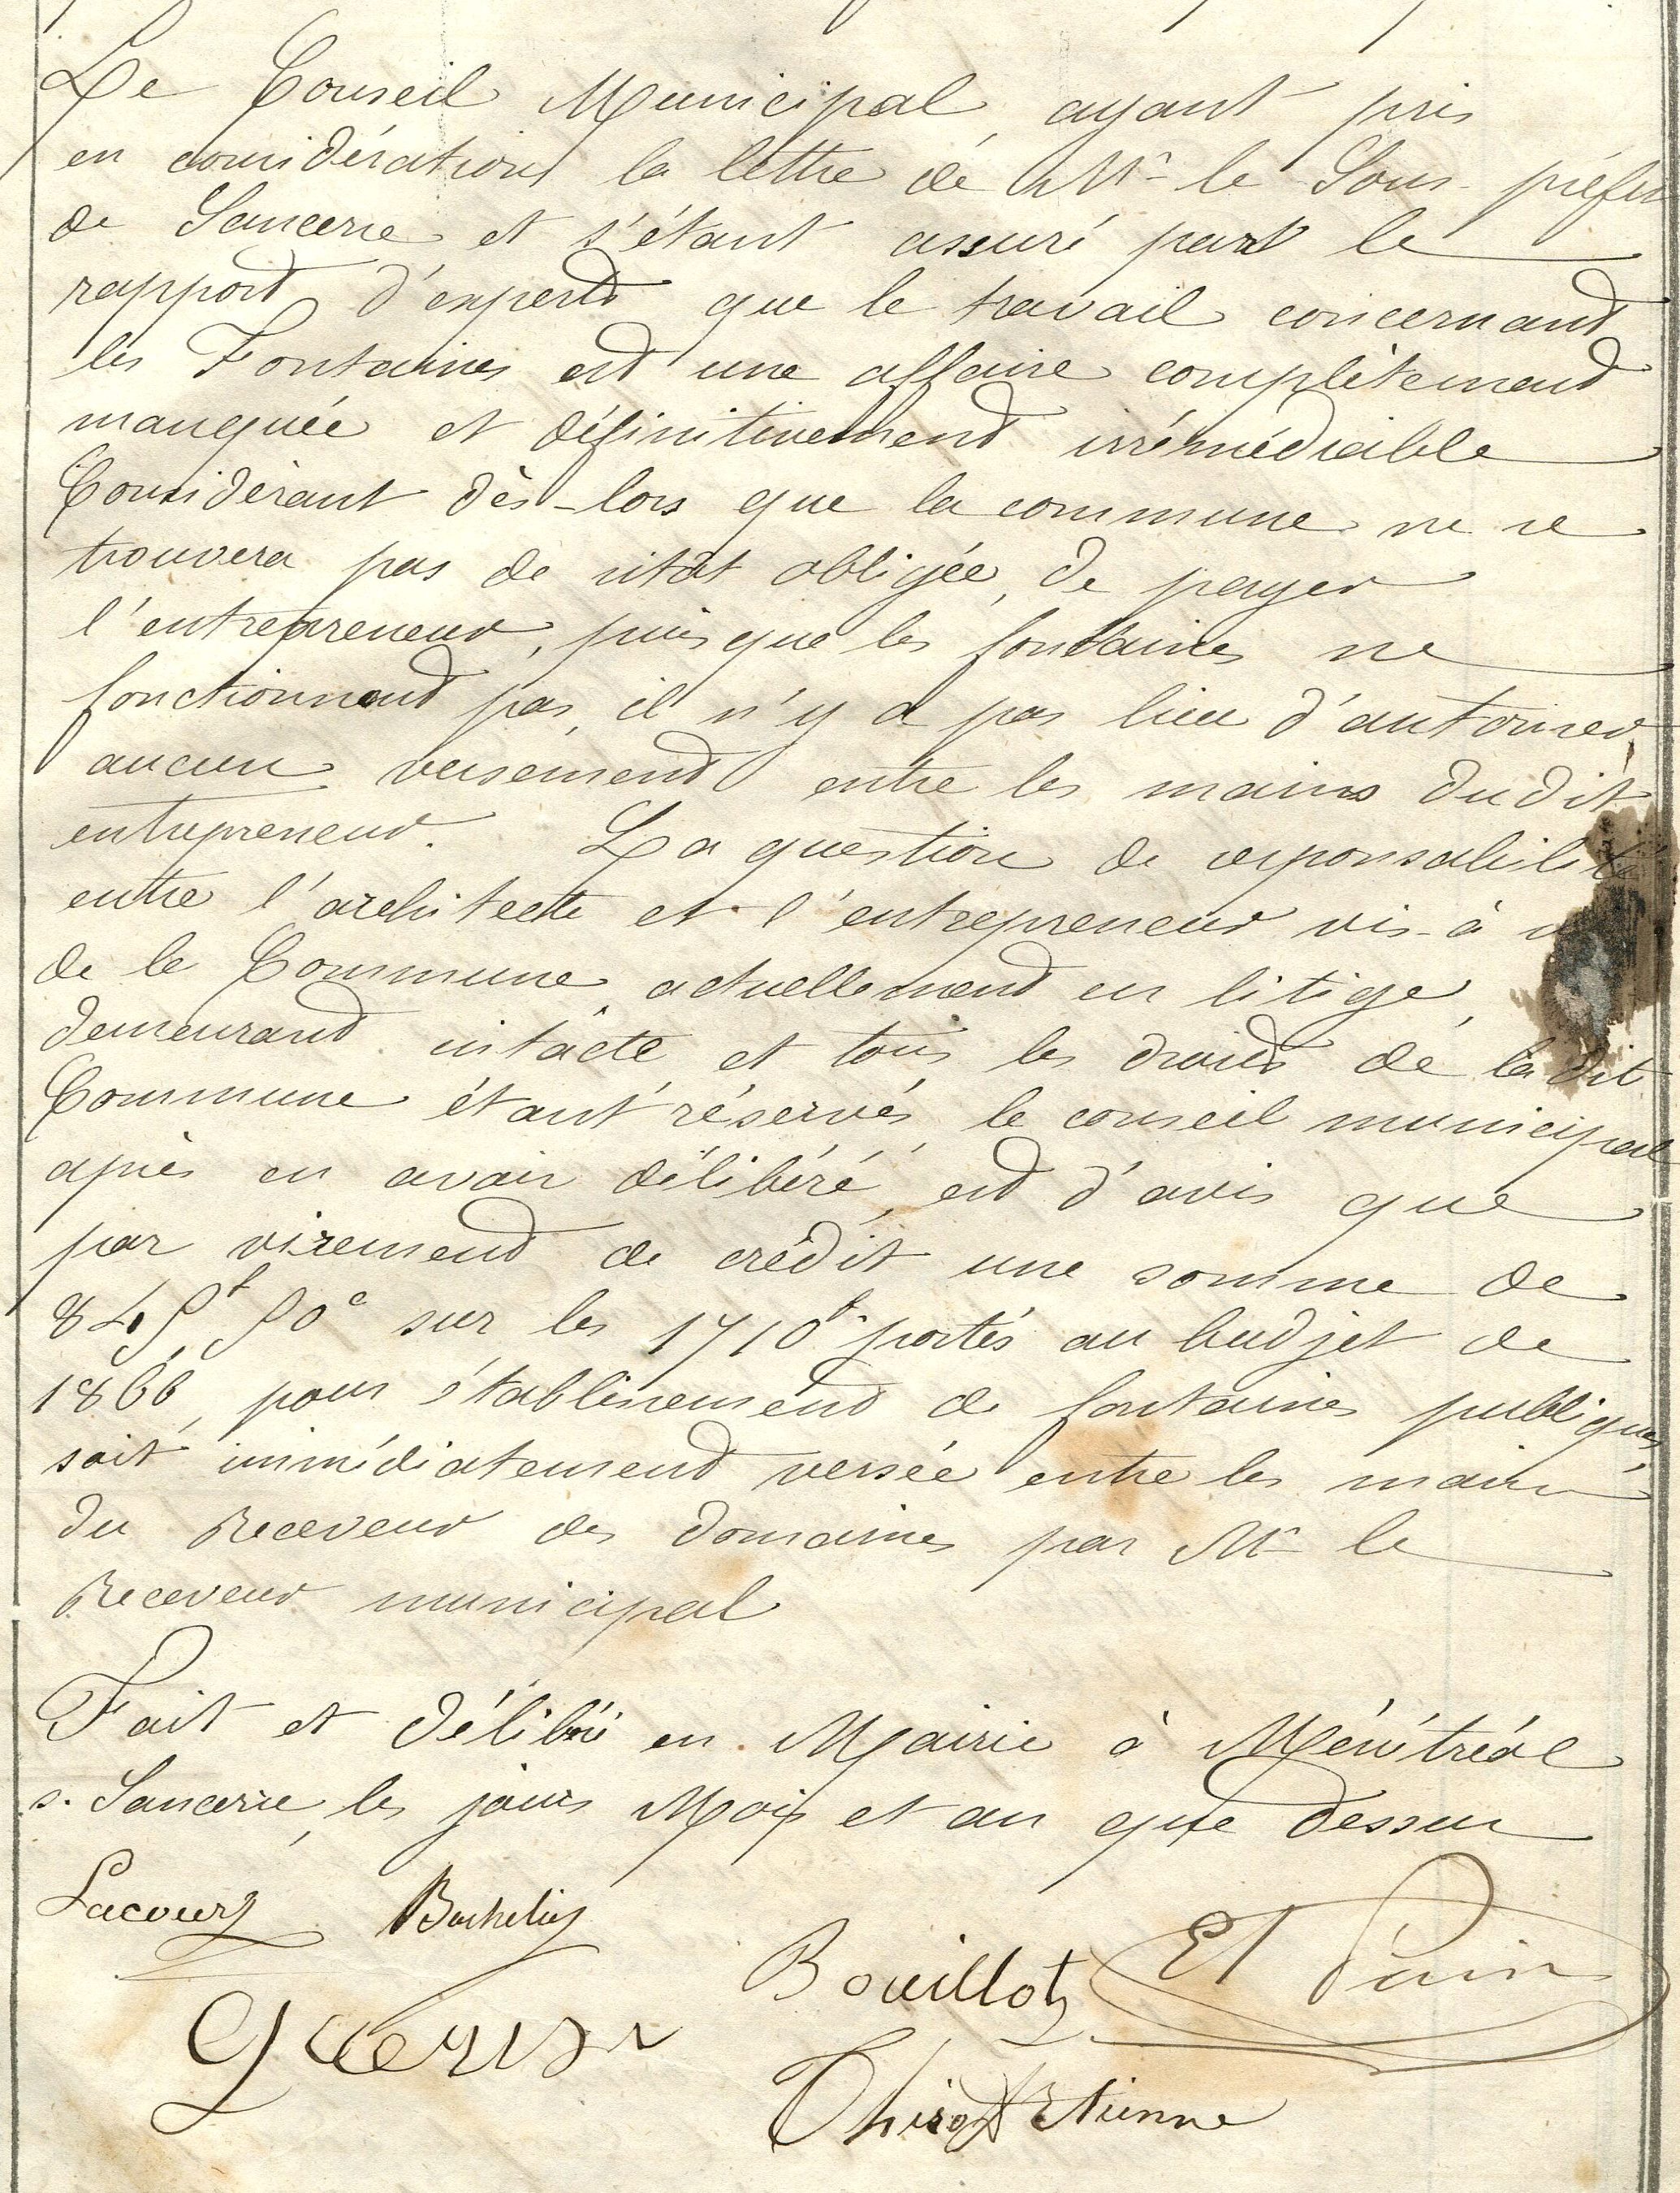 Le Conseil Municipal ayant pris
en considération la lettre de Mr le Sous-préfet
de Sancerre et s'étant assuré par le
rapport d'experts que le travail concernant
les Fontaines est une affaire complètement
manquée et définitivement irrémédiable
Considérant dès-lors que la commune ne se
trouvera pas de sitôt obligée, de payer
l'entrepreneur, puisque les fontaines ne
fonctionnent pas, il n'y a pas lieu d'autoriser
aucun versement entre les mains dudit
entrepreneur. La question de responsabilité
entre l'architecte et l'entrepreneur vis-à
de la Commune, actuellement en litige,
demeurant intacte et tous les droits de ladit
Commune étant réservés, le conseil municipal
après en avoir délibéré, est d'avis que
par virement de crédit une somme de
845f,90c sur les 1710f portés au budjet de
1866, pour établissement de fontaines publiques,
soit immédiatement versée entre les mains
du Receveur des domaines par Mr le
Receveur municipal
Fait et délibéré en Mairie à Ménétréol
s. Sancerre, les jours Mois et an que dessus
Lacour Bachelier
Bouillot Et Pain
Thirot Etienne